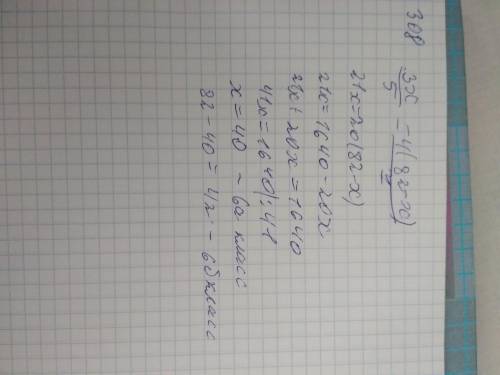 308
3x/5 = 4(82-x)/7
21x=20(82-x)
21x=1640-20x
21x+20x=1640
41x=1640|:41
x=40 - 6а класс
82-40=42 - 6б класс